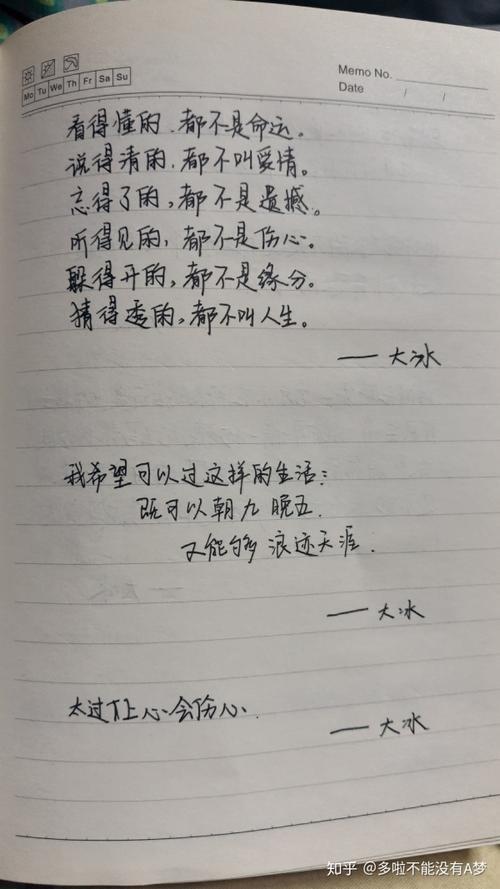 Memo No.
Mo Tu We Th Fr Sa Su
Date / /
看得懂的、都不是命运。
说得清的、都不叫爱情。
忘得了的,都不是遗憾。
听得见的,都不是伤心。
躲得开的,都不是缘分。
猜得透的,都不叫人生。
—— 大冰
我希望可以过这样的生活:
既可以朝九晚五.
又能够浪迹天涯.
—— 大冰
太过上心会伤心.
—— 大冰
知乎 @多啦不能没有A梦